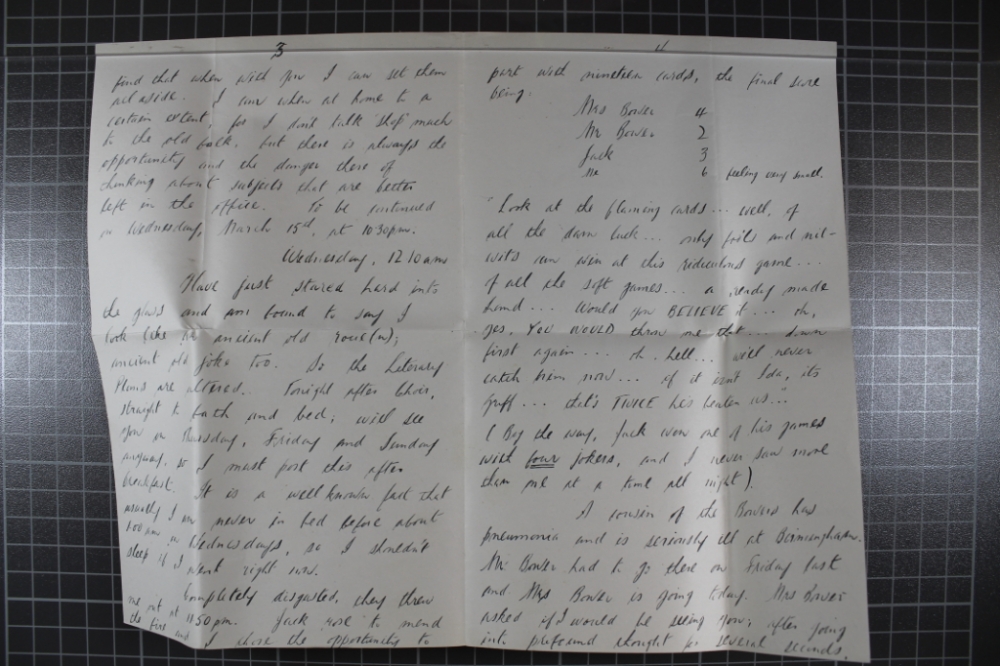 3
find that when with you I can set them
all aside. I can when at home to a
certain extent, for I don't talk 'shop' much
to the old folk, but there is always the
opportunity and the danger there of
thinking about subjects that are better
left in the office. To be continued
on Wednesday, March 15th, at 10.30pm.
Wednesday, 12.10am
Have just stared hard into
the glass and am bound to say I
look like an ancient old roué(n);
ancient old joke too. So the Literary
Plans are altered. Tonight after Choir,
straight to bath and bed; will see
you on Thursday, Friday and Sunday
anyway, so I must post this after
breakfast. It is a well known fact that
usually I am never in bed before about
1.00 am on Wednesdays, so I shouldn't
sleep if I went right now.
Completely disgusted, they threw
me out at 11.50pm. Jack rose to mend
the fire and I chose the opportunity to
4
part with nineteen cards, the final score
being.
Mrs Bower 4
Mr Bower 2
Jack 3
Me 6 feeling very small.
"Look at the flaming cards... well, of
all the darn luck... only fools and nit-
wits can win at this ridiculous game...
of all the soft games... a ready made
hand... Would you BELIEVE it... oh,
yes, YOU WOULD throw me that... down
first again... oh hell... will never
catch him now... if it isn't Ida, its
Griff... that's TWICE he's beaten us..."
(By the way, Jack won one of his games
with four jokers, and I never saw more
than one at a time all night).
A cousin of the Bowers has
pneumonia and is seriously ill at Birmingham.
Mr Bower had to go there on Friday last
and Mrs Bower is going today. Mrs Bower
asked if I would be seeing you; after going
into profound thought for several seconds,